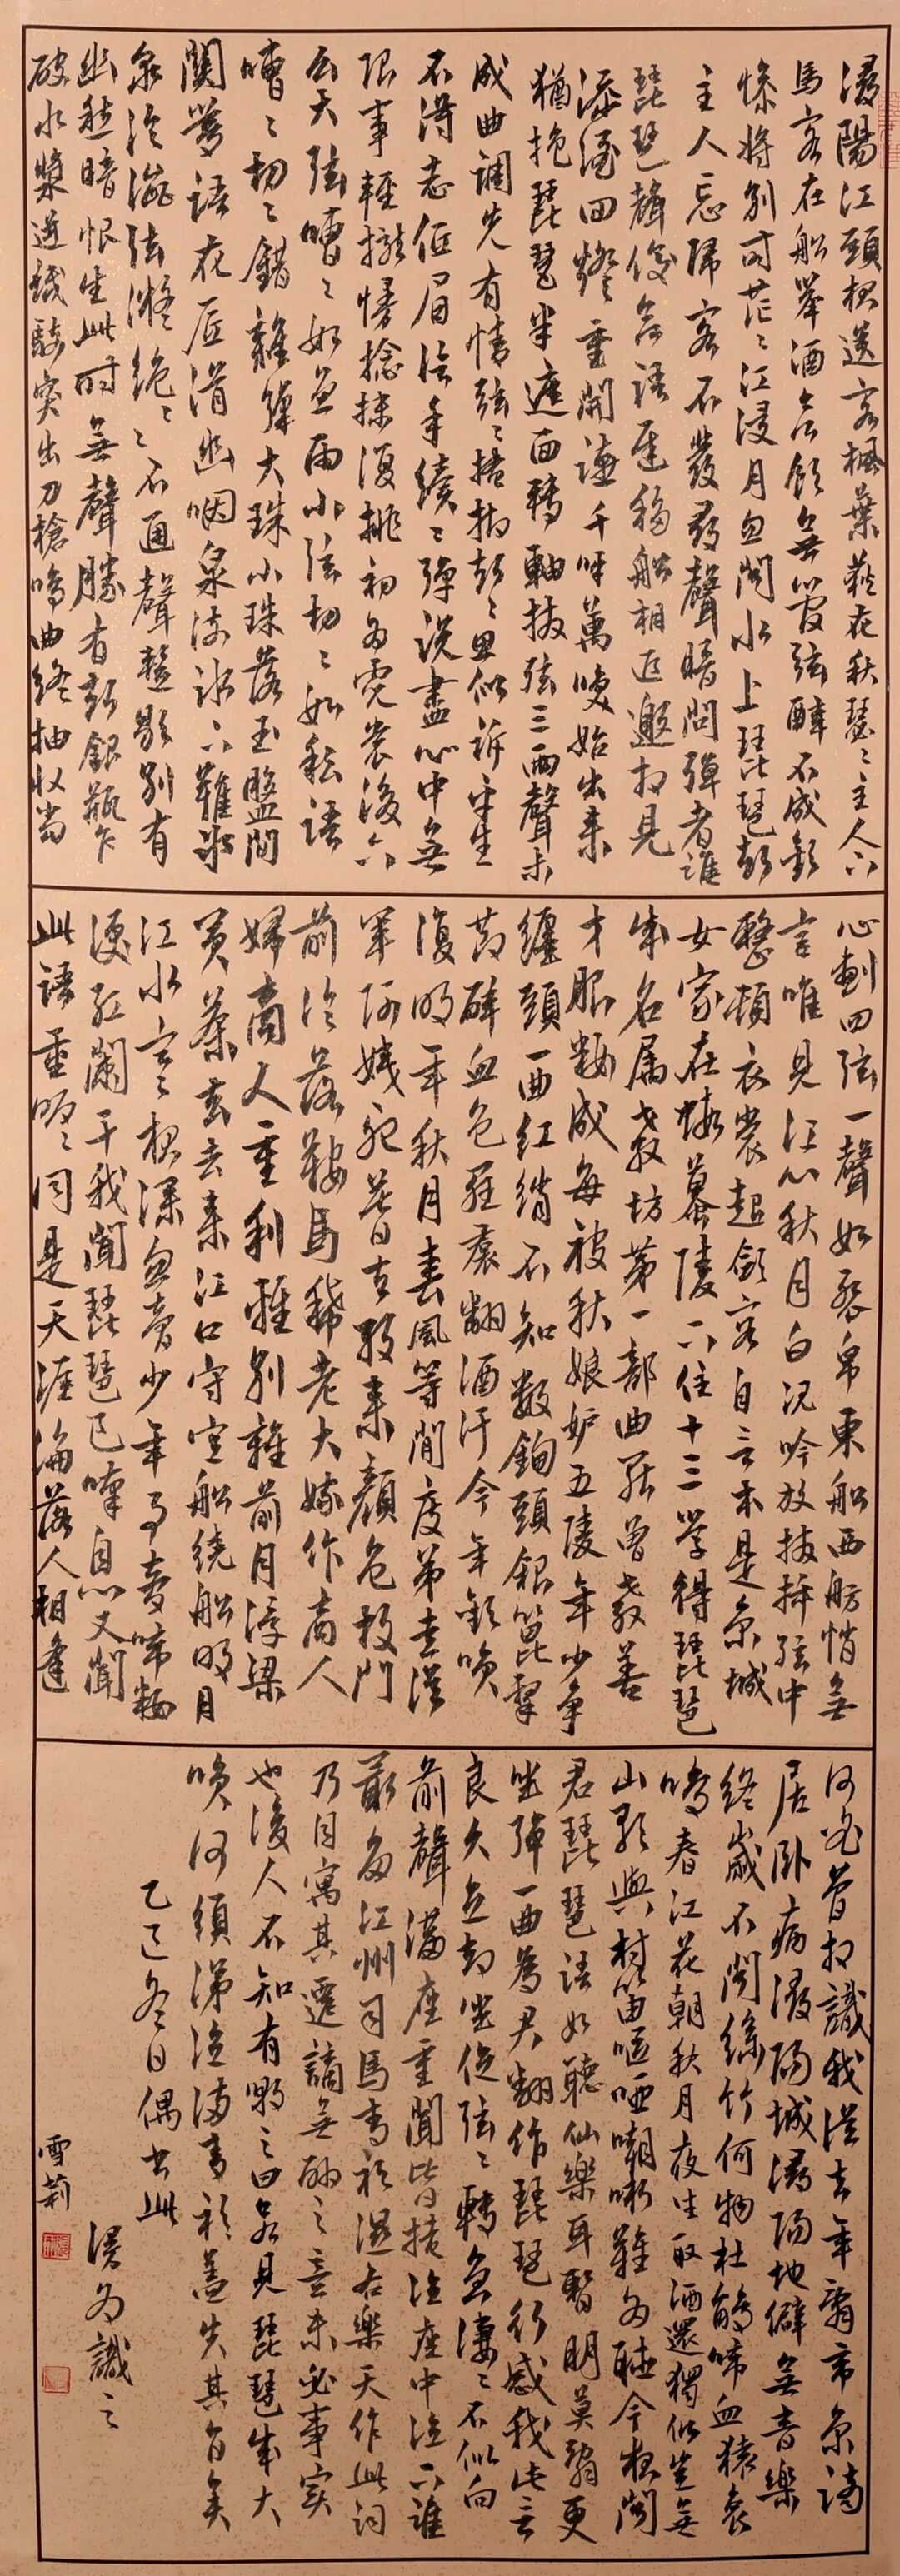 潯陽江頭夜送客楓葉荻花秋瑟々主人下
馬客在船舉酒欲飲無管弦醉不成歡
慘將別別時茫々江浸月忽聞水上琵琶聲
主人忘歸客不發尋聲暗問彈者誰
琵琶聲停欲語遲移船相近邀相見
添酒回燈重開讌千呼萬喚始出來
猶抱琵琶半遮面轉軸撥弦三兩聲未
成曲調先有情弦々掩抑聲々思似訴平生
不得志低眉信手續々彈說盡心中無
限事輕攏慢捻抹復挑初為霓裳後六
幺大弦嘈々如急雨小弦切々如私語
嘈々切々錯雜彈大珠小珠落玉盤間
關鶯語花底滑幽咽泉流冰下難冰
泉冷澀弦凝絕々々不通聲暫歇別有
幽愁暗恨生此時無聲勝有聲銀瓶乍
破水漿迸鐵騎突出刀槍鳴曲終抽收當
心劃四弦一聲如裂帛東船西舫悄無
言唯見江心秋月白沉吟放撥插弦中
整頓衣裳起斂容自言本是京城
女家在蝦蟇陵下住十三學得琵琶
成名屬教坊第一部曲罷曾教善
才服妝成每被秋娘妒五陵年少爭
纏頭一曲紅綃不知數鈿頭銀篦擊
節碎血色羅裙翻酒汙今年歡笑
復明年秋月春風等閒度弟走從
軍阿姨死暮去朝來顏色故門
前冷落鞍馬稀老大嫁作商人
婦商人重利輕別離前月浮梁
買茶去去來江口守空船繞船明月
江水寒夜深忽夢少年事夢啼妝
淚紅闌干我聞琵琶已嘆息又聞
此語重唧々同是天涯淪落人相逢
何必曾相識我從去年辭帝京謫
居臥病潯陽城潯陽地僻無音樂
終歲不聞絲竹何物杜鵑啼血猿哀
鳴春江花朝秋月夜往取酒還獨傾豈無
山歌與村笛嘔啞嘲哳難為聽今夜聞
君琵琶語如聽仙樂耳暫明莫辭更
坐彈一曲為君翻作琵琶行感我此言
良久立卻坐促弦々轉急淒々不似向
前聲滿座重聞皆掩泣座中泣下誰
最多江州司馬青衫濕右樂天作此詞
乃自寓其遷謫無聊之意未必事實
也後人不知有嘲之曰若見琵琶成大
笑何須涕泣滿青衫蓋失其旨矣
乙巳冬日偶書此
漫為識之
雪莉